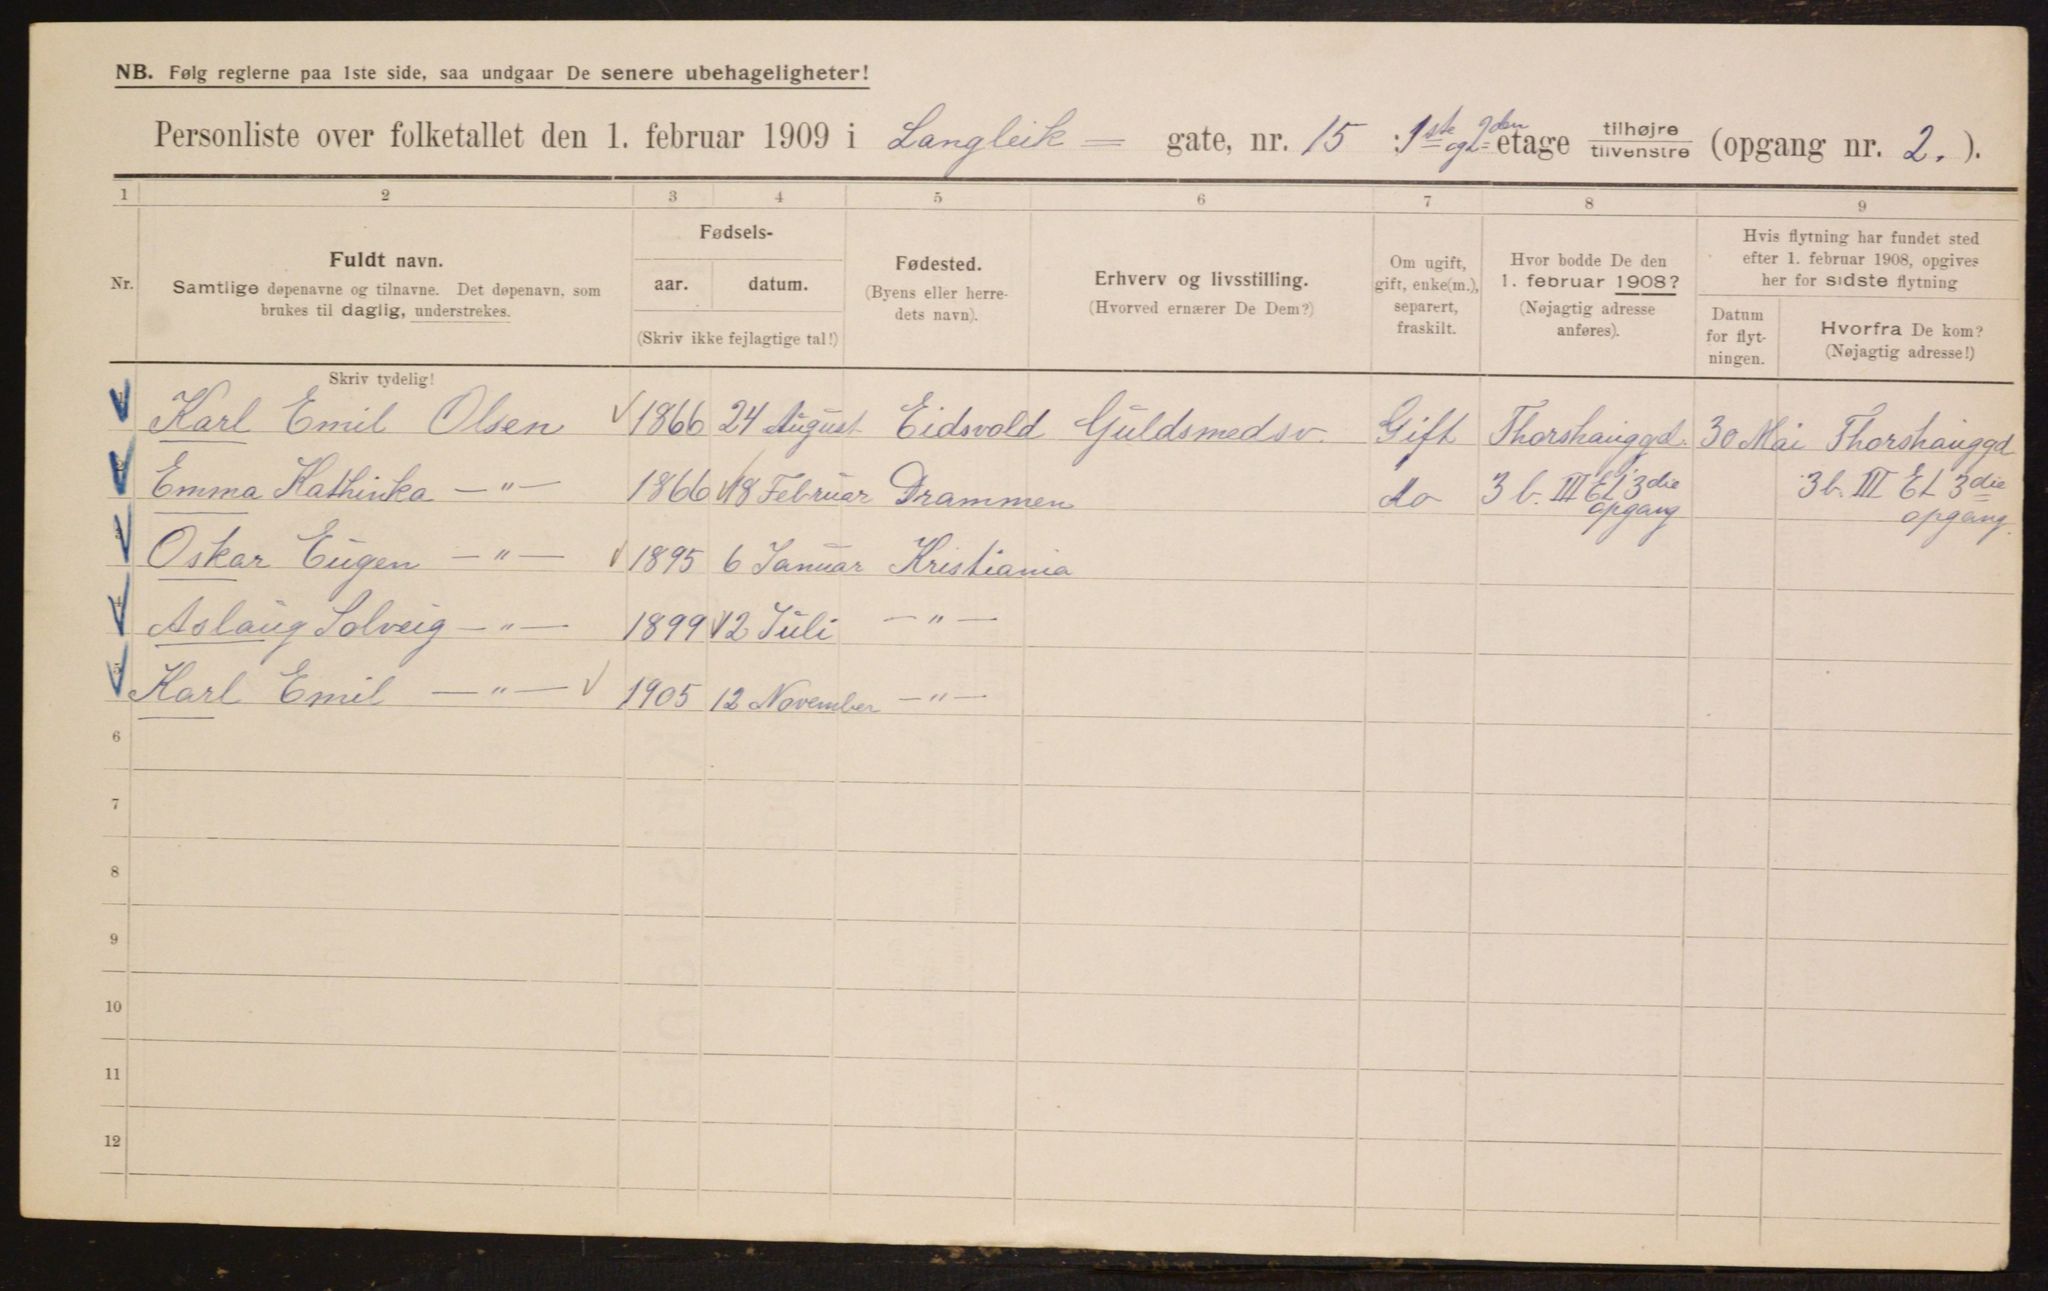 NB. Følg reglerne paa 1ste side, saa undgaar De senere ubehageligheter!
Personliste over folketallet den 1. februar 1909 i Langleik = gate, nr. 15 : 1ste og 2den etage tilhøjre tilvenstre (opgang nr. 2. ).
1 2 3 4 5 6 7 8 9
Nr.
Fuldt navn.
Samtlige døpenavne og tilnavne. Det døpenavn, som
brukes til daglig, understrekes.
Skriv tydelig!
Fødsels-
aar. datum.
(Skriv ikke fejlagtige tal!)
Fødested.
(Byens eller herre-
dets navn).
Erhverv og livsstilling.
(Hvorved ernærer De Dem?)
Om ugift,
gift, enke(m.),
separert,
fraskilt.
Hvor bodde De den
1. februar 1908?
(Nøjagtig adresse
anføres).
Hvis flytning har fundet sted
efter 1. februar 1908, opgives
her for sidste flytning
Datum
for flyt-
ningen.
Hvorfra De kom?
(Nøjagtig adresse!)
Karl Emil Olsen 1866 24 August Eidsvold Guldsmedsv. Gift Thorshauggd. 30 Mai Thorshauggd
2 Emma Kathinka —"— 1866 18 Februar Drammen do 3 b. III Et 3die opgang 3 b. III Et 3die opgang.
3 Oskar Eugen —"— 1895 6 Januar Kristiania
4 Aslaug Solveig —"— 1899 12 Juli —"—
5 Karl Emil —"— 1905 12 November —"—
6
7
8
9
10
11
12